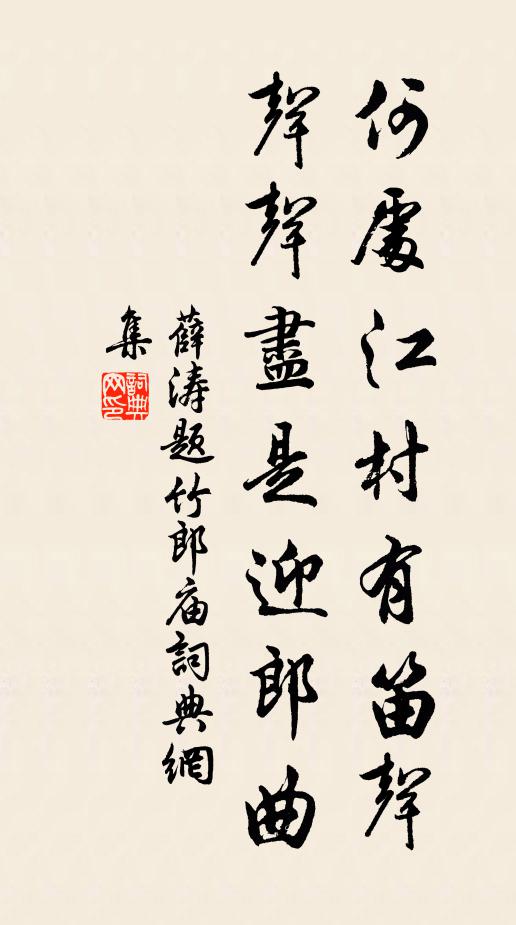 何處江村有笛聲
聲聲盡是迎郎曲
薛涛題竹郎庙詞典網
集
詞典
网印